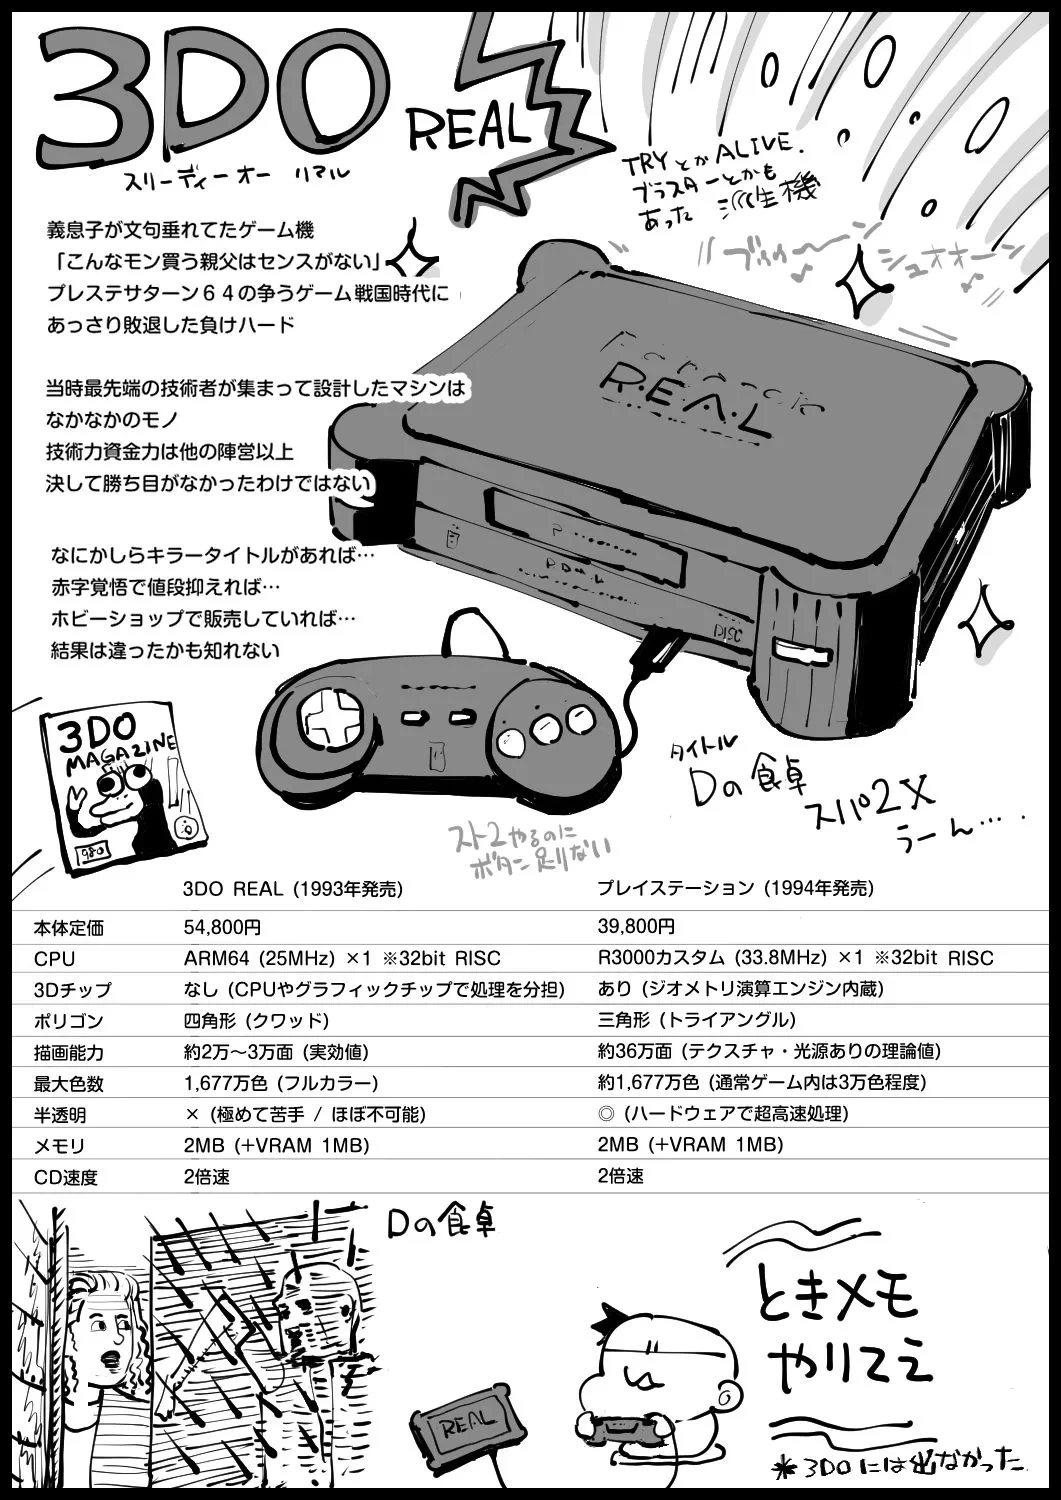 3DO
REAL
スリーディーオー リアル
TRYとかALIVE.
ブラスターとかも
あった 派生機
シュオオーン
義息子が文句垂れてたゲーム機
「こんなモン買う親父はセンスがない」
プレステサターン６４の争うゲーム戦国時代に
あっさり敗退した負けハード
当時最先端の技術者が集まって設計したマシンは
なかなかのモノ
技術力資金力は他の陣営以上
決して勝ち目がなかったわけではない
なにかしらキラータイトルがあれば…
赤字覚悟で値段抑えれば…
ホビーショップで販売していれば…
結果は違ったかも知れない
R.E.A.L
DISC
3DO
MAGAZINE
980
タイトル
Dの食卓
スパ2X
うーん…
スト2やるのに
ボタン足りない
3DO REAL (1993年発売) プレイステーション (1994年発売)
本体定価 54,800円 39,800円
CPU ARM64 (25MHz) ×1 ※32bit RISC R3000カスタム (33.8MHz) ×1 ※32bit RISC
3Dチップ なし (CPUやグラフィックチップで処理を分担) あり (ジオメトリ演算エンジン内蔵)
ポリゴン 四角形 (クワッド) 三角形 (トライアングル)
描画能力 約2万〜3万面 (実効値) 約36万面 (テクスチャ・光源ありの理論値)
最大色数 1,677万色 (フルカラー) 約1,677万色 (通常ゲーム内は3万色程度)
半透明 × (極めて苦手 / ほぼ不可能) ◎ (ハードウェアで超高速処理)
メモリ 2MB (+VRAM 1MB) 2MB (+VRAM 1MB)
CD速度 2倍速 2倍速
Dの食卓
ときメモ
やりてえ
REAL
＊3DOには出なかった